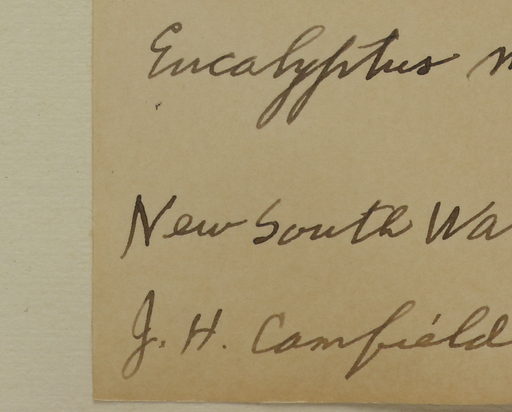 Eucalyptus m
New South Wa
J. H. Camfield